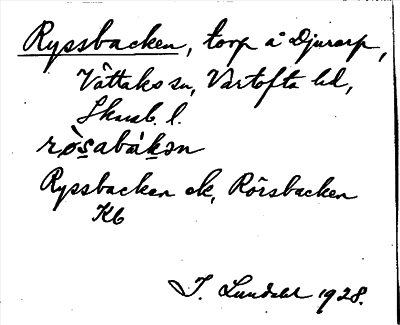 Ryssbacken, torp å Djurarp,
Våttaks sn, Vartofta hd,
Skarab. l.
rò̀sabákən
Ryssbacken ek, Rörsbacken
Kb
I. Lundahl 1928.